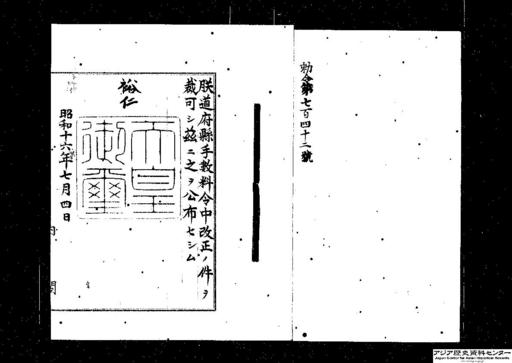 勅令第七百四十二號
朕道府縣手數料令中改正ノ件ヲ
裁可シ茲ニ之ヲ公布セシム
裕仁
天皇
御璽
昭和十六年七月四日
アジア歴史資料センター
Japan Center for Asian Historical Records